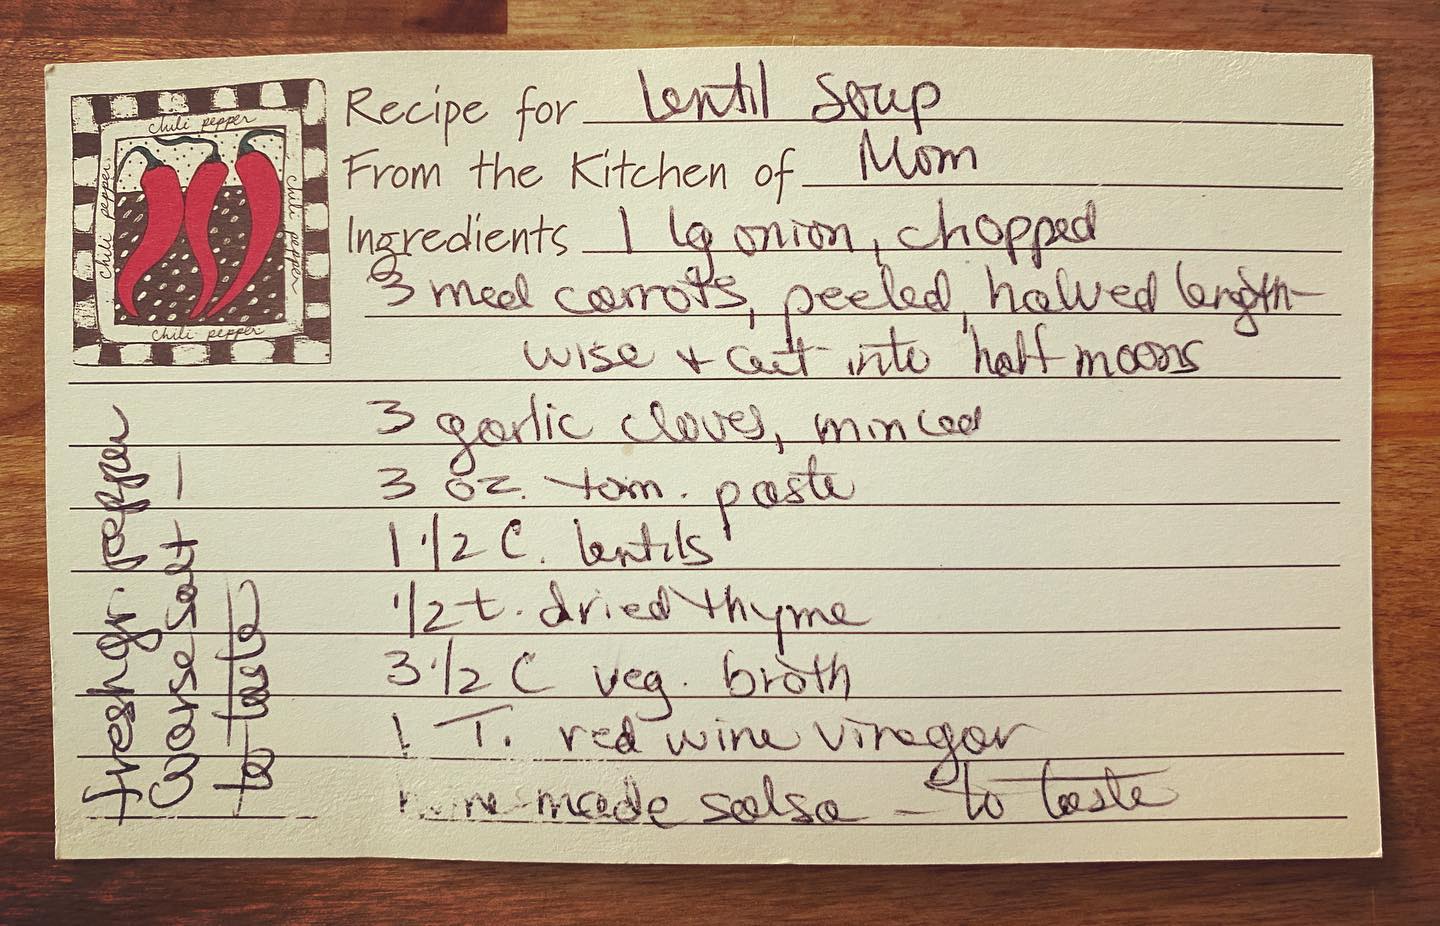 chili pepper
chili pepper
chili pepper
chili pepper
Recipe for lentil soup
From the Kitchen of Mom
Ingredients 1 lg onion, chopped
3 med carrots, peeled, halved length-
wise + cut into half moons
3 garlic cloves, minced
3 oz. tom. paste
1 1/2 C. lentils
1/2 t. dried thyme
3 1/2 C veg. broth
1 T. red wine vinegar
home-made salsa - to taste
fresh gr. pepper
coarse salt -
to taste